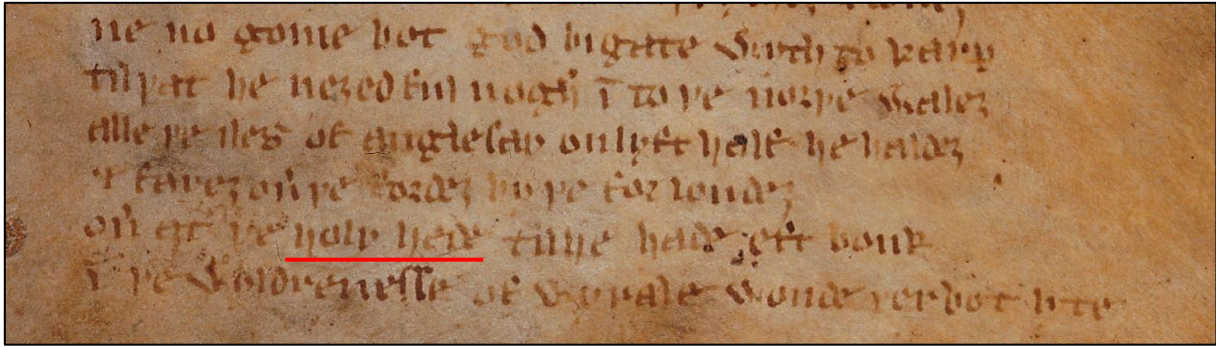 ne no gome bot god bigate wyth to karp
til þat he neȝed ful noghe ī to þe norþe waleȝ
alle þe iles of anglesay on lyft half he haldeȝ
⁊ fareȝ ou̅ þe fordeȝ by þe for londeȝ
ou̅ at þe holy hede til he hade eft bonk
ī þe wyldrenesse of wyrale wonde þer bot lyte